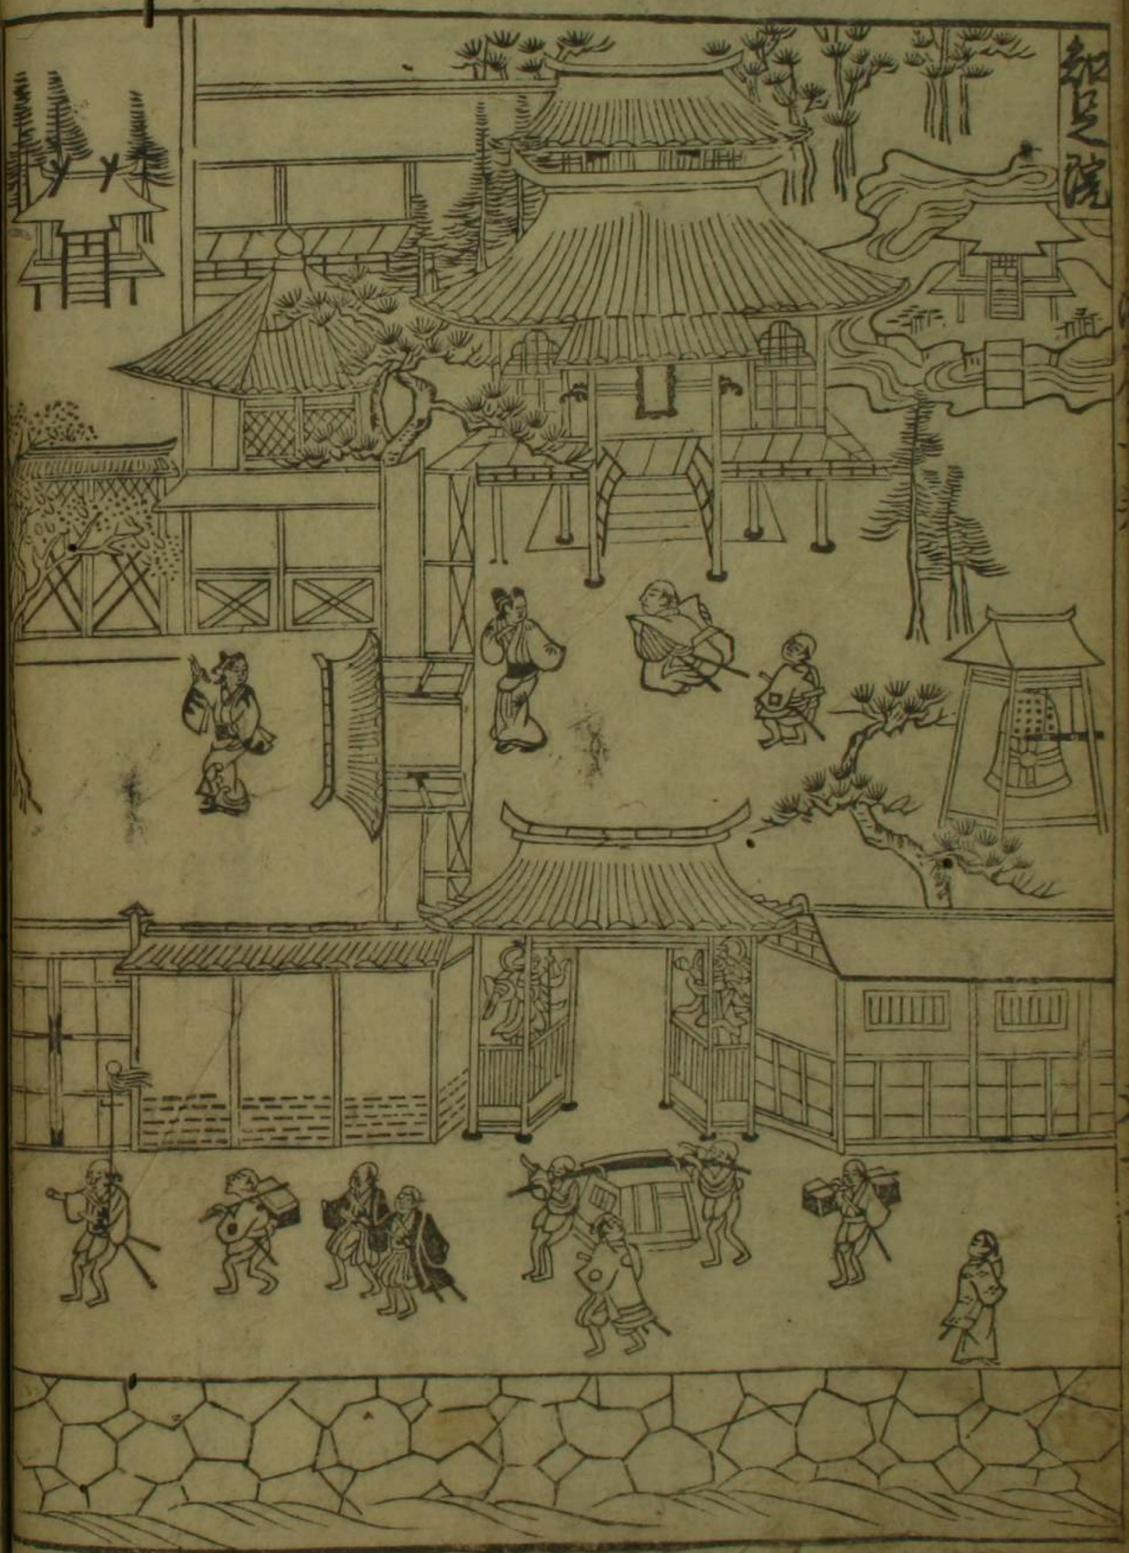 知足院